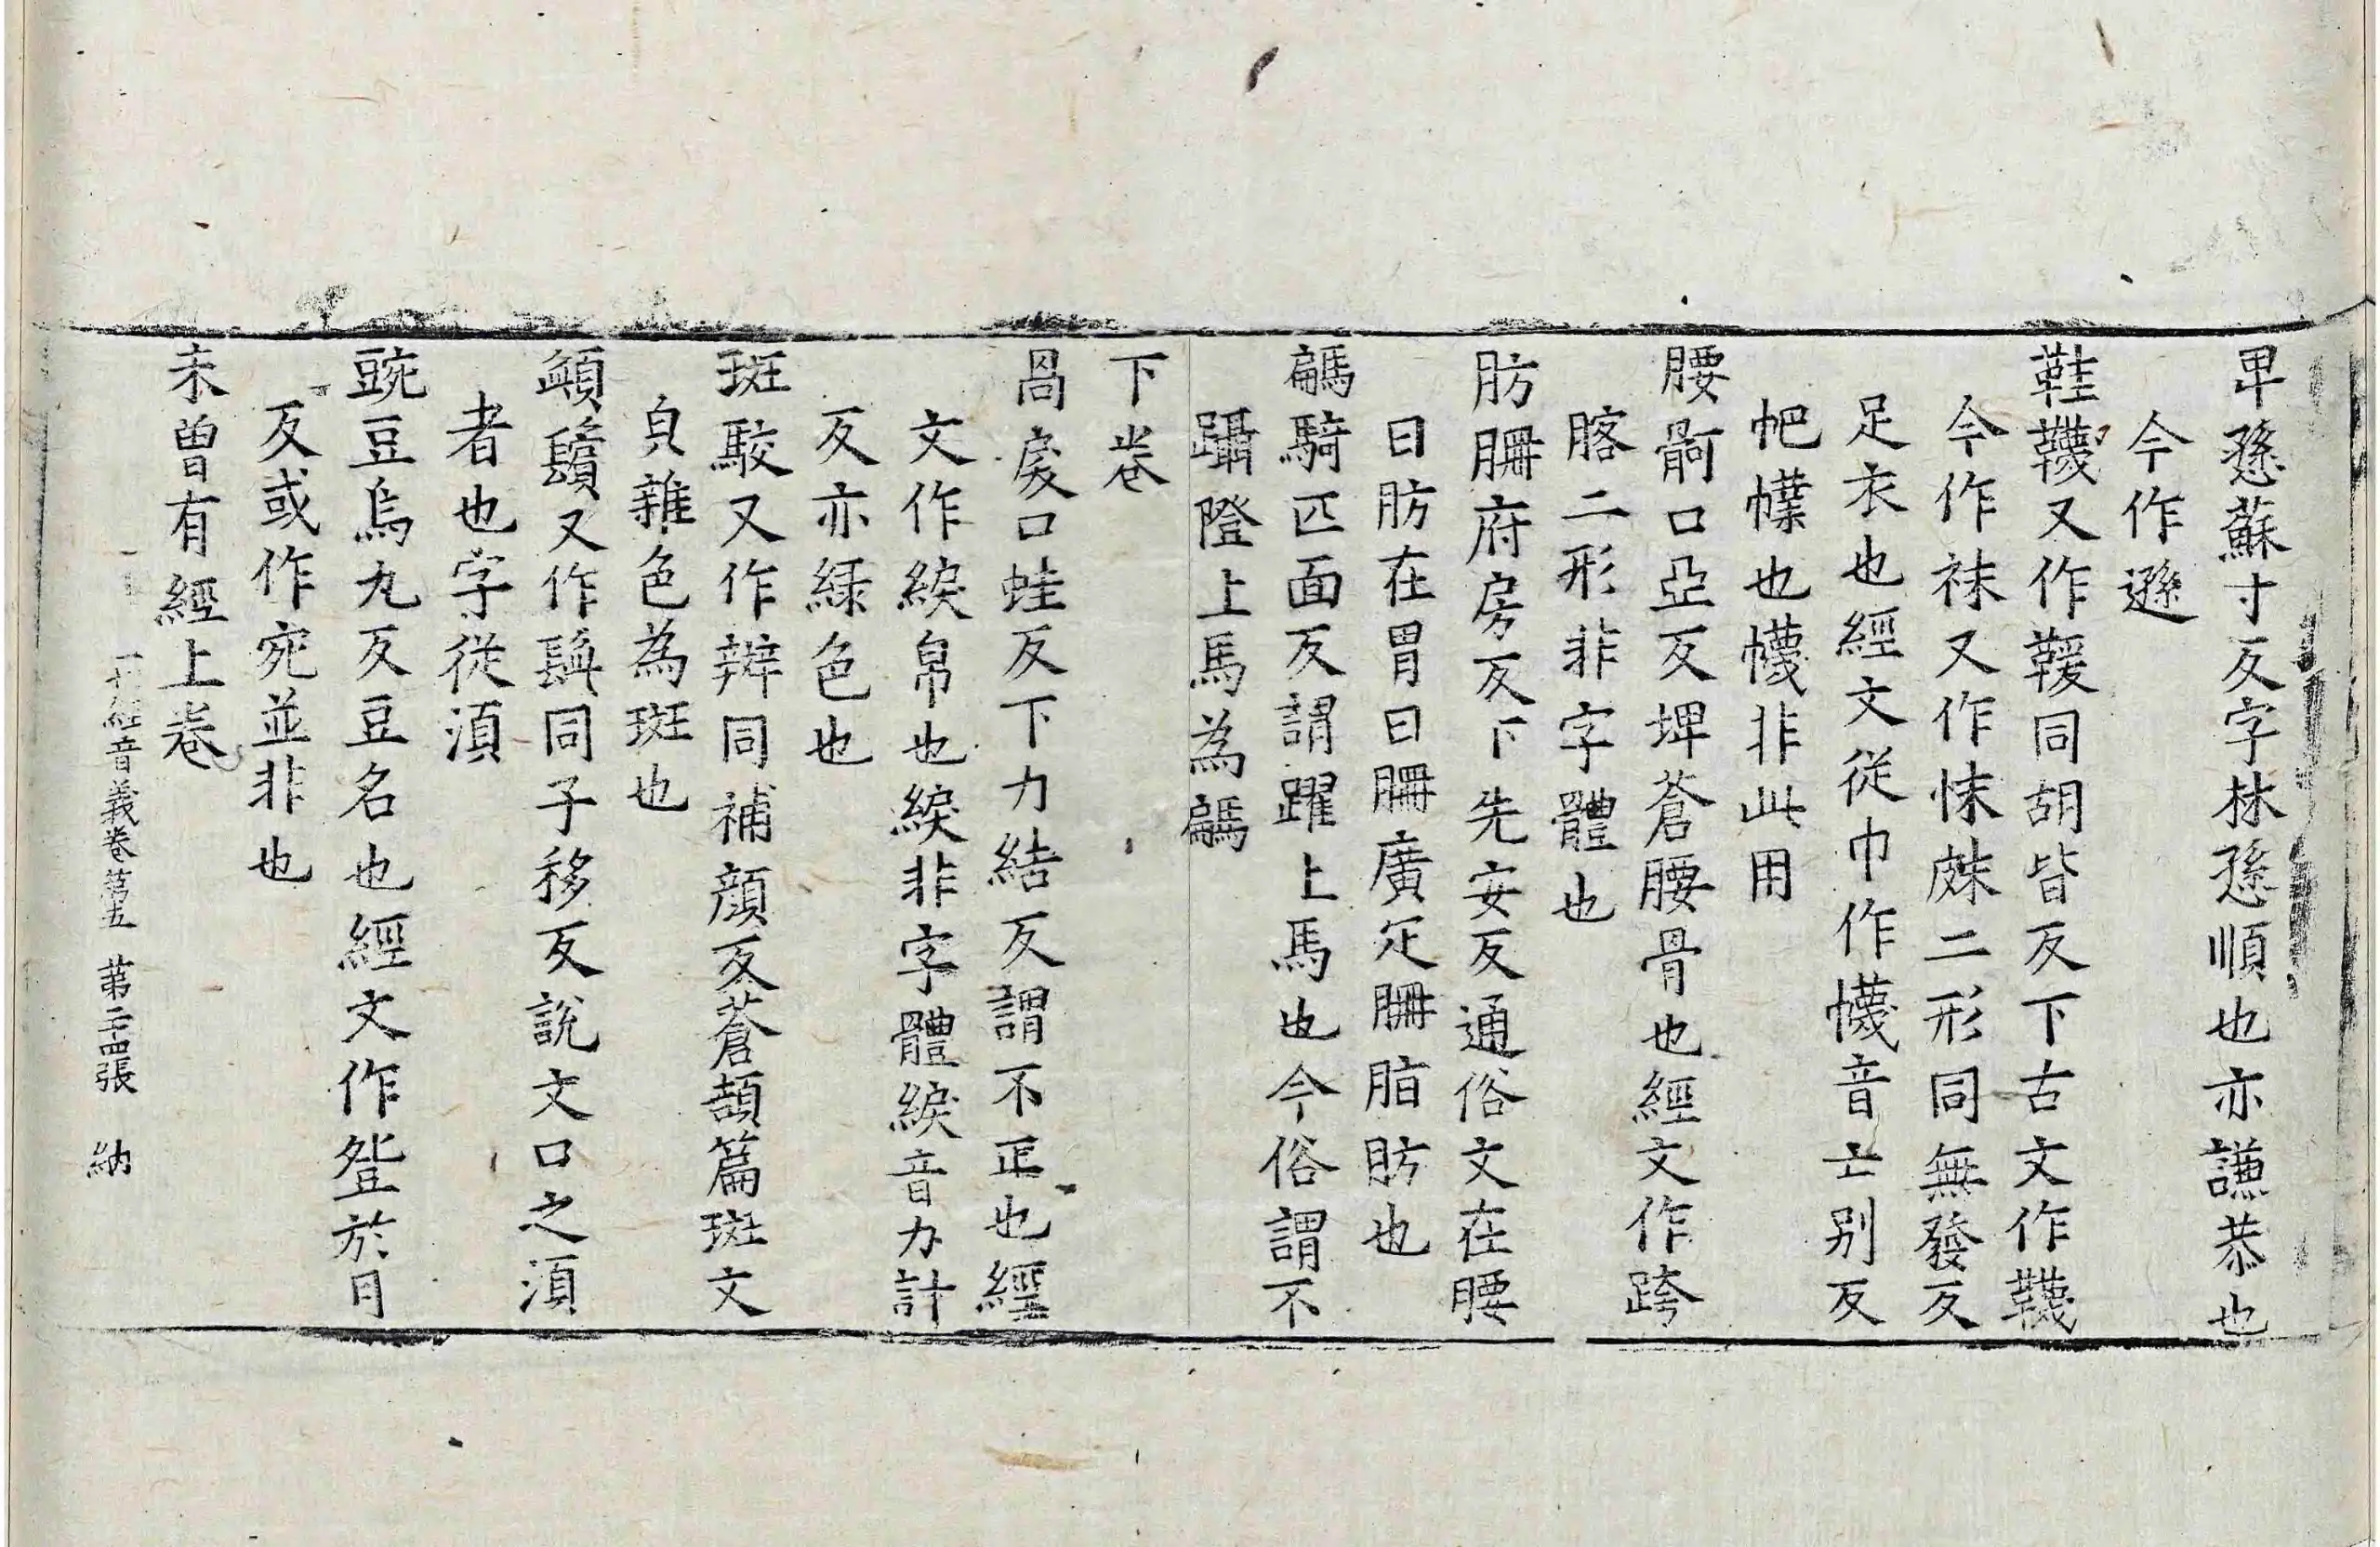 卑愻蘇寸反字林愻順也亦謙恭也
今作遜
鞋韈又作鞵同胡皆反下古文作韈
今作袜又作怽𢇲二形同無發反
足衣也經文從巾作幭音亡別反
帊幞也幭非此用
腰䯊口亞反埤蒼腰骨也經文作跨
䯊二形非字體也
肪䐹府房反下先安反通俗文在腰
曰肪在胃曰䐹廣疋䐹脂肪也
騗騎匹面反謂躍上馬也今俗謂不
躡隥上馬為騗
下卷
咼戾口蛙反下力結反謂不正也經
文作綟帛也綟非字體綟音力計
反亦緑色也
斑駮又作辬同補顔反蒼頡篇斑文
皃雜色為斑也
頿鬚又作髭同子移反説文口之湏
者也字從湏
豌豆烏丸反豆名也經文作登於月
反或作宛並非也
未曾有經上卷
一切經音義卷第五 第二十四張 納